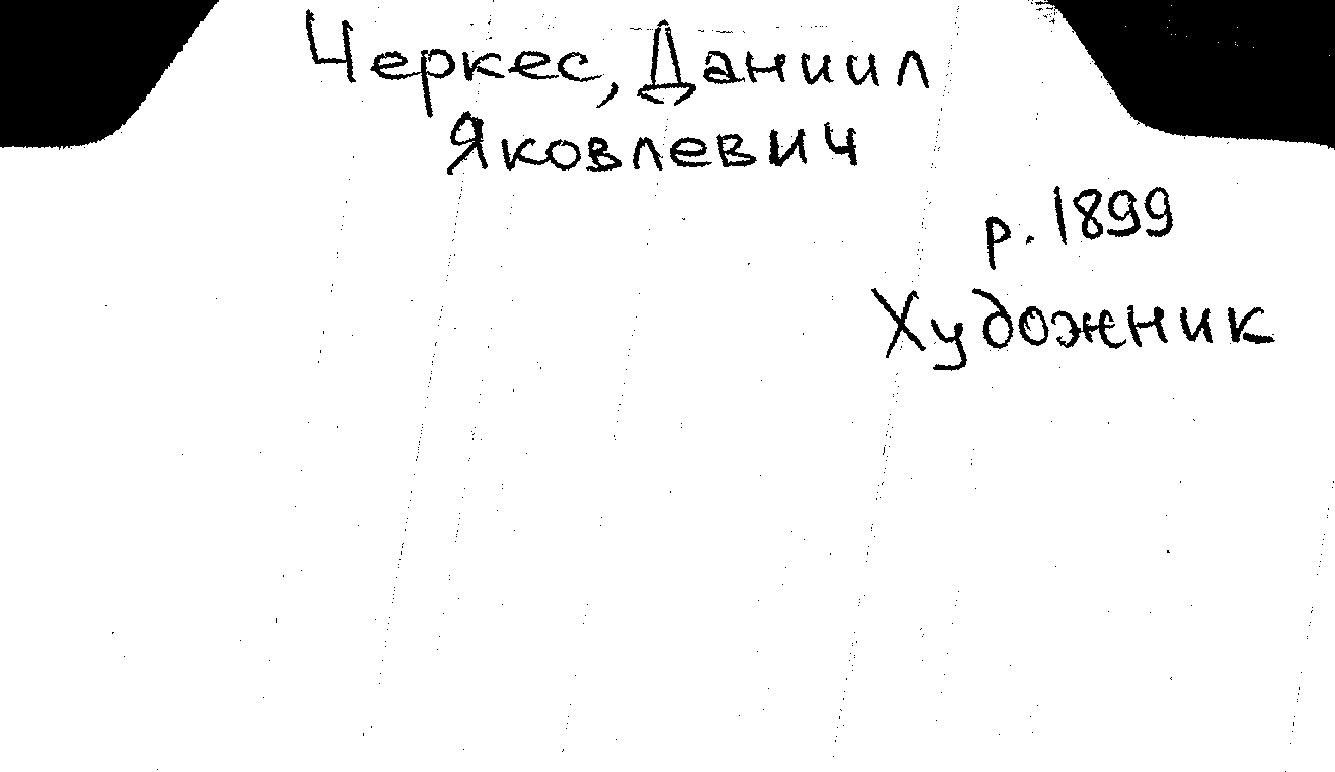 Черкес, Даниил
Яковлевич
р. 1899
Художник